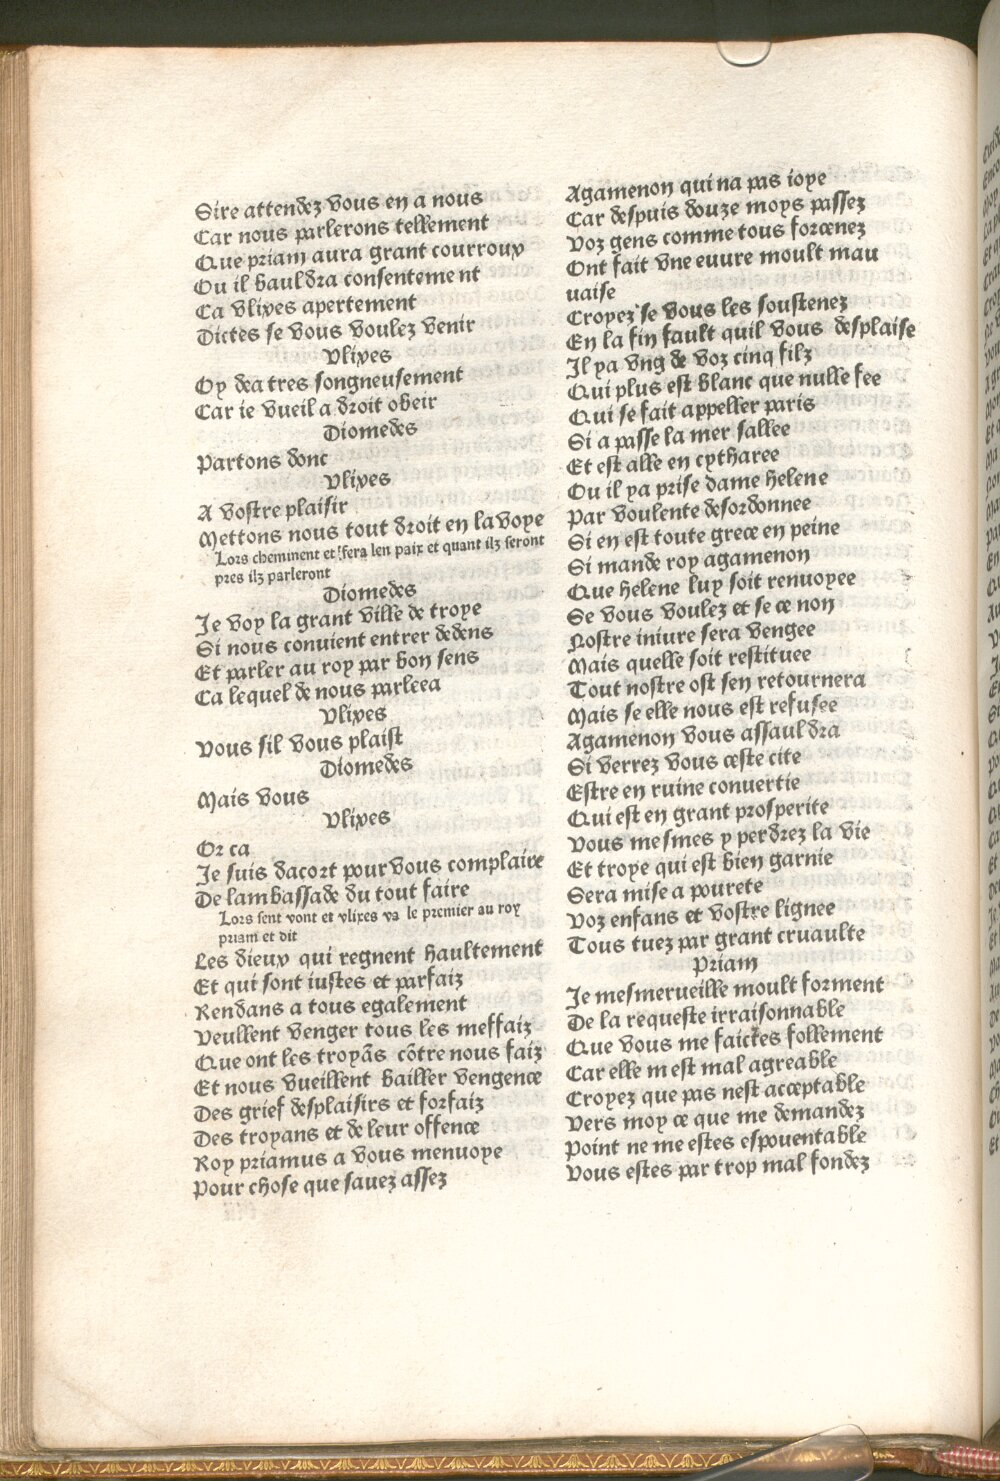 Sire attendez vous en a nous
Car nous parlerons tellement
Que priam aura grant courroux
Ou il bauldra consentement
Ca vlixes apertement
Dictes se vous voulez venir
Vlixes
Oy dea tres songneusement
Car ie vueil a droit obeir
Diomedes
Partons donc
Vlixes
A vostre plaisir
Mettons nous tout droit en la voye
Lors cheminent et fera len paix et quant ilz seront
pres ilz parleront
Diomedes
Je voy la grant ville de troye
Si nous conuient entrer dedens
Et parler au roy par bon sens
Ca lequel de nous parleea
Vlixes
Vous sil vous plaist
Diomedes
Mais vous
Vlixes
Or ca
Je suis dacort pour vous complaire
De lambassade du tout faire
Lors sent vont et vlixes va le premier au roy
priam et dit
Les dieux qui regnent haultement
Et qui sont iustes et parfaiz
Rendans a tous egalement
Veullent venger tous les meffaiz
Que ont les troyãs cõtre nous faiz
Et nous vueillent bailler vengence
Des grief desplaisirs et forfaiz
Des troyans et de leur offence
Roy priamus a vous menuoye
Pour chose que sauez assez
Agamenon qui na pas ioye
Car despuis douze moys passez
Voz gens comme tous forcenez
Ont fait vne euure moult mau
uaise
Croyez se vous les soustenez
En la fin fault quil vous desplaise
Il ya vng de voz cinq filz
Qui plus est blanc que nulle fee
Qui se fait appeller paris
Si a passe la mer sallee
Et est alle en cytharee
Ou il ya prise dame helene
Par voulente desordonnee
Si en est toute grece en peine
Si mande roy agamenon
Que helene luy soit renuoyee
Se vous voulez et se ce non
Nostre iniure sera vengee
Mais quelle soit restituee
Tout nostre ost sen retournera
Mais se elle nous est refusee
Agamenon vous assauldra
Si verrez vous ceste cite
Estre en ruine conuertie
Qui est en grant prosperite
Vous mesmes y perdrez la vie
Et troye qui est bien garnie
Sera mise a pourete
Voz enfans et vostre lignee
Tous tuez par grant cruaulte
Priam
Je mesmerueille moult forment
De la requeste irraisonnable
Que vous me faictes follement
Car elle m est mal agreable
Croyez que pas nest acceptable
Vers moy ce que me demandez
Point ne me estes espouentable
Vous estes par trop mal fondez